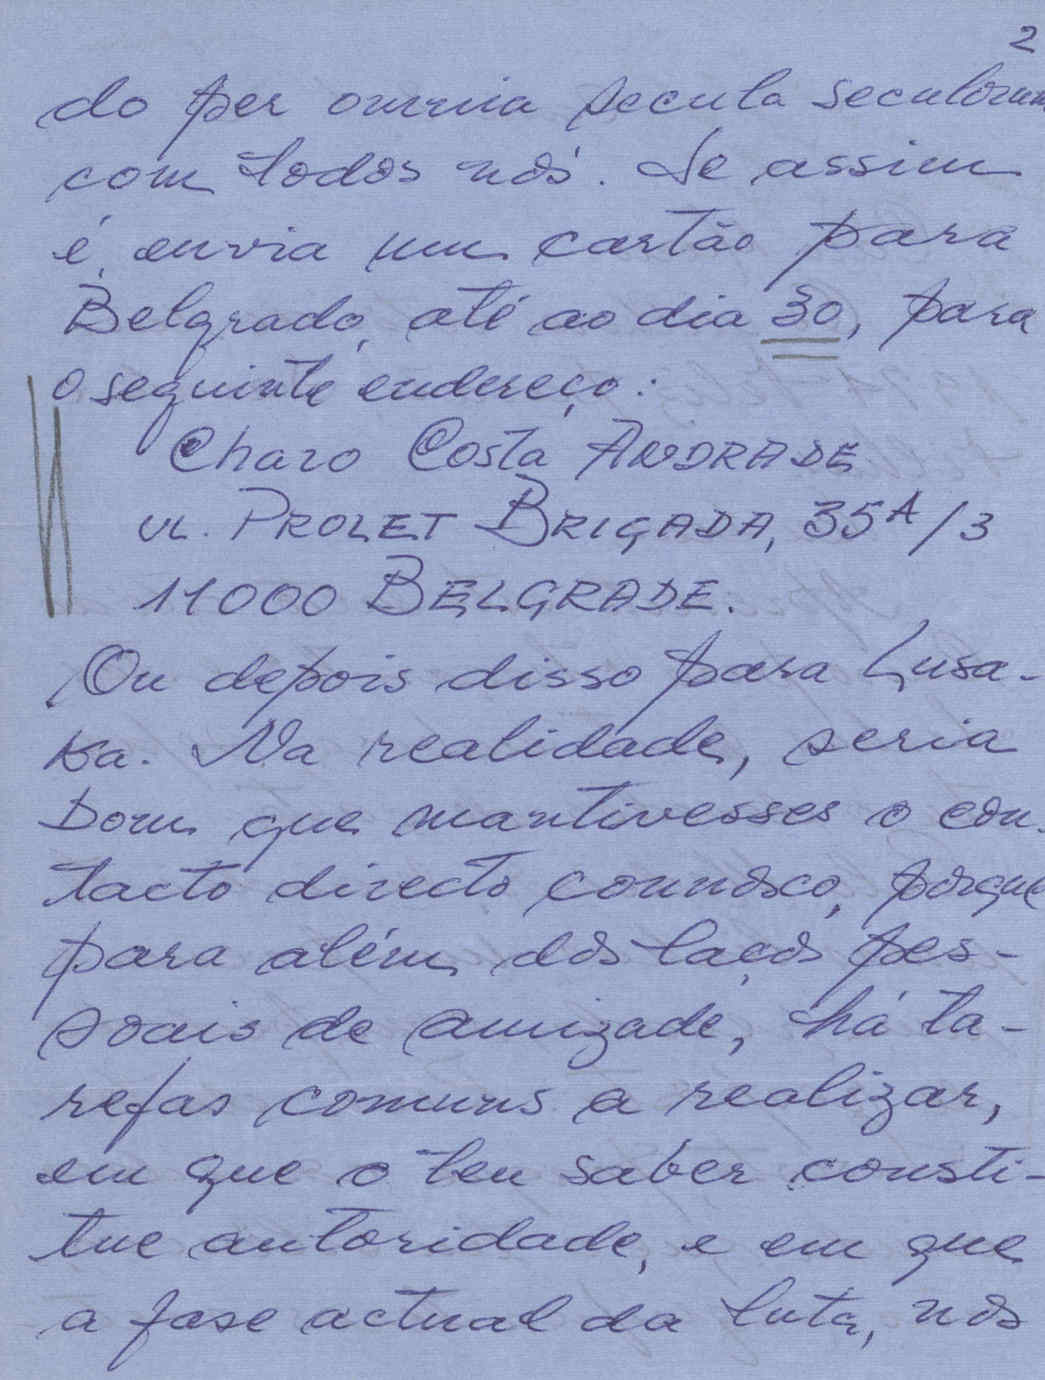 2
do per omnia secula seculorum
com todos nós. Se assim
é, envia um cartão para
Belgrado, até ao dia 30, para
o seguinte endereço:
Charo Costa ANDRADE
ul. PROLET BRIGADA, 35A/3
11000 BELGRADE.
Ou depois disso para Lusa-
ka. Na realidade, seria
bom que mantivesses o con-
tacto directo connosco, porque
para além dos laços pes-
soais de amizade, há ta-
refas comuns a realizar,
em que o teu saber consti-
tue autoridade, e em que
a fase actual da luta, nos